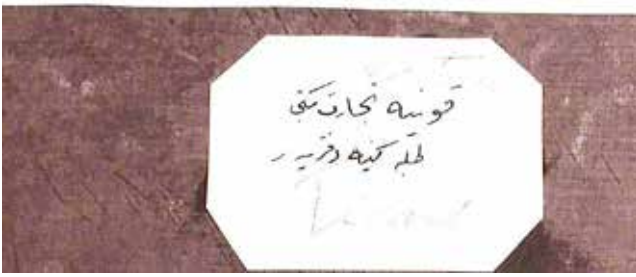 قونیه تجارت مکتبی
طلبه کنیه دفتریدر